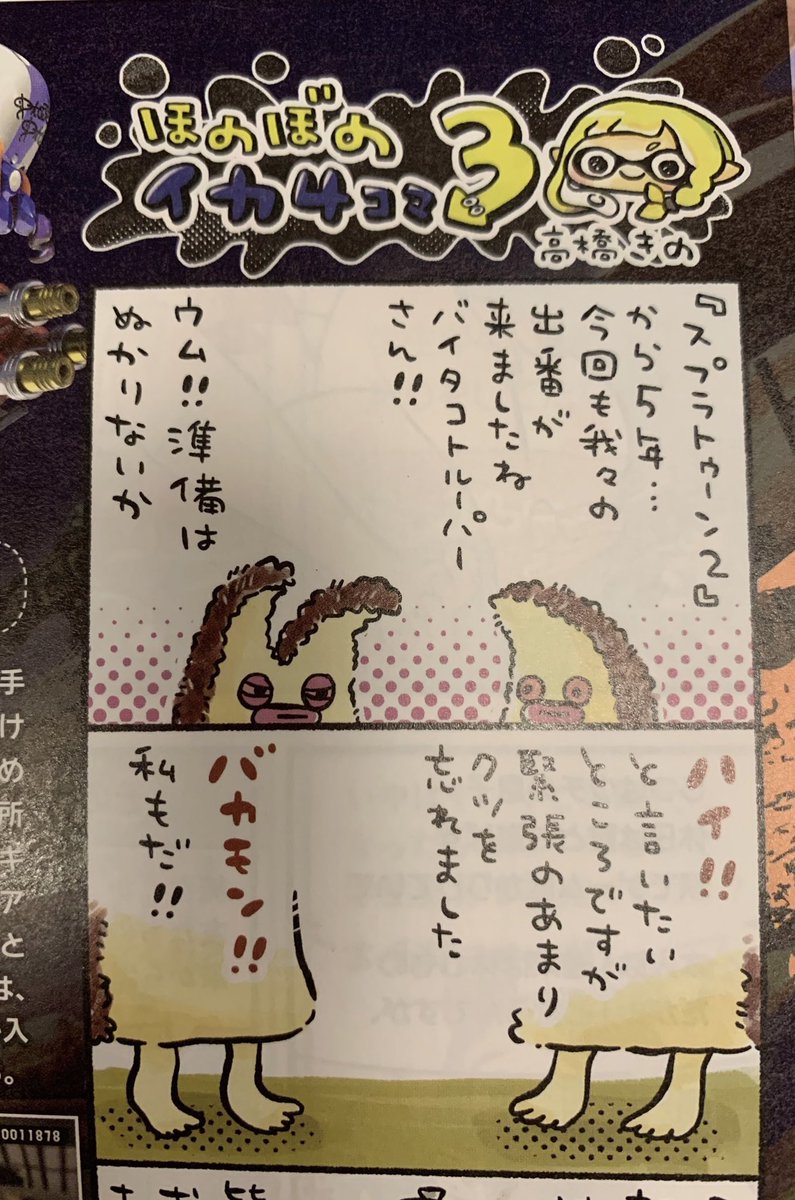 ほのぼの
イカ4コマ3
高橋きの
『スプラトゥーン2』
から5年…
今回も我々の
出番が
来ましたね
バイタコトルーパー
さん!!
ウム!!準備は
ぬかりないか
ハイ!!
と言いたい
ところですが
緊張のあまり
クツを
忘れました
バカモン!!
私もだ!!
手
け
め
所
ギ
ア
と
は、
入
る。
0011878